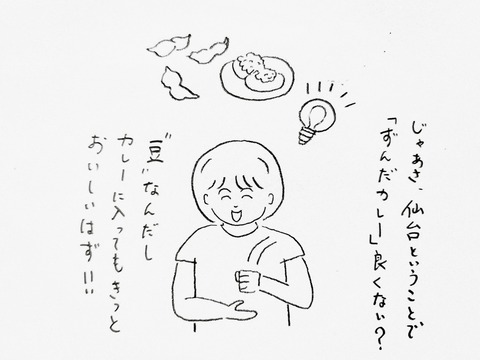 じゃあさ、仙台ということで
「ずんだカレー」良くない?
"豆"なんだし
カレーに入ってもきっと
おいしいはず!!!